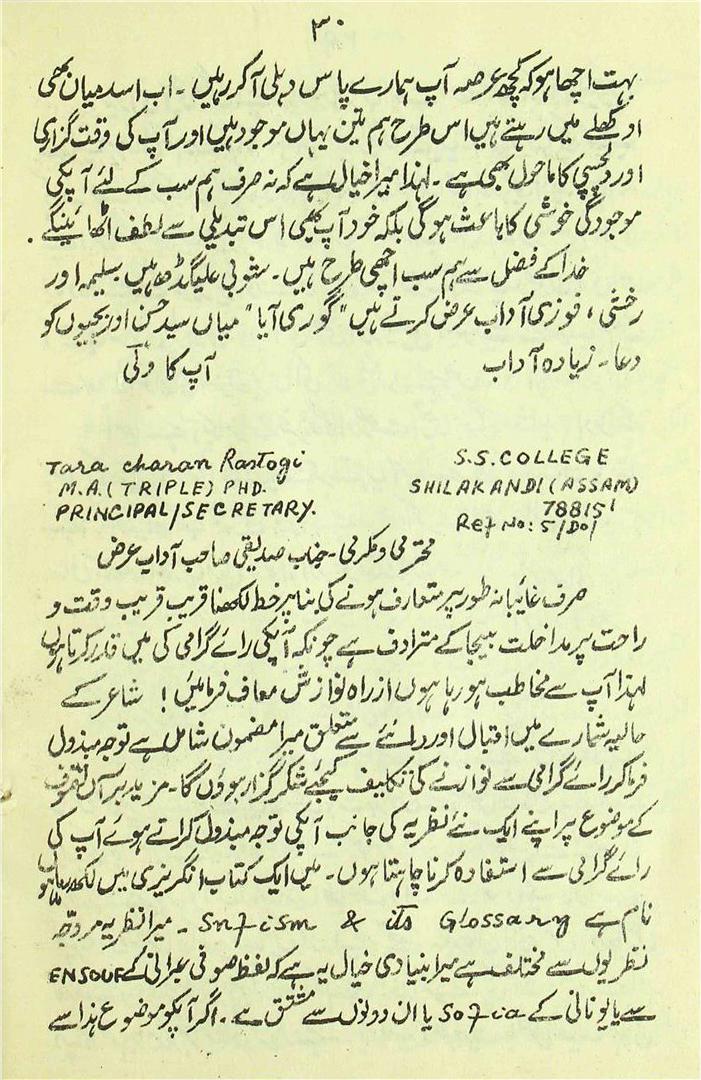 ۳۰
بہت اچھا ہو کہ کچھ عرصہ آپ ہمارے پاس دہلی آکر رہیں ۔ اب اسد میاں بھی
اوکھلے میں رہتے ہیں اس طرح ہم تین یہاں موجود ہیں اور آپ کی وقت گزاری
اور دلچسپی کا ماحول بھی ہے ۔ لہذا میرا خیال ہے کہ نہ صرف ہم سب کے لئے آپکی
موجودگی خوشی کا باعث ہوگی بلکہ خود آپ بھی اس تبدیلی سے لطف اٹھائینگے ۔
خدا کے فضل سے ہم سب اچھی طرح ہیں ۔ شوبی علیگڈھ ہیں سلیمہ اور
رخشی ، فوزی آداب عرض کرتے ہیں "گوری آیا" میاں سید حسن اور بچیوں کو
دعا ۔ زیادہ آداب
آپ کا ولی
Tara Charan Rastogi
M.A. (TRIPLE) PHD.
PRINCIPAL/SECRETARY.
S.S. COLLEGE
SHILAKANDI (ASSAM)
788151
Ref No: 5/DO/
محترمی و مکرمی ۔ جناب صدیقی صاحب آداب عرض
صرف غائبانہ طور پر متعارف ہونے کی بنا پر خط لکھنا قریب قریب وقت و
راحت پر مداخلت بیجا کے مترادف ہے چونکہ آپکی رائے گرامی کی میں قدر کرتا ہوں
لہذا آپ سے مخاطب ہو رہا ہوں از راہ نوازش معاف فرمائیں ! شاعر کے
حالیہ شمارے میں اقبال اور دانتے سے متعلق میرا مضمون شامل ہے توجہ مبذول
فرما کر رائے گرامی سے نوازنے کی تکالیف کیجئے شکر گزار ہوؤں گا ۔ مزید برآں تصوف
کے موضوع پر اپنے ایک نئے نظریہ کی جانب آپکی توجہ مبذول کراتے ہوئے آپ کی
رائے گرامی سے استفادہ کرنا چاہتا ہوں ۔ میں ایک کتاب انگریزی میں لکھ رہا ہوں
نام ہے Sufism & its Glossary ۔ میرا نظریہ مروجہ
نظریوں سے مختلف ہے میرا بنیادی خیال یہ ہے کہ لفظ صوفی عبرانی کے ENSOUF
سے یا یونانی کے Sofia یا ان دونوں سے مشتق ہے ۔ اگر آپکو موضوع ہذا سے